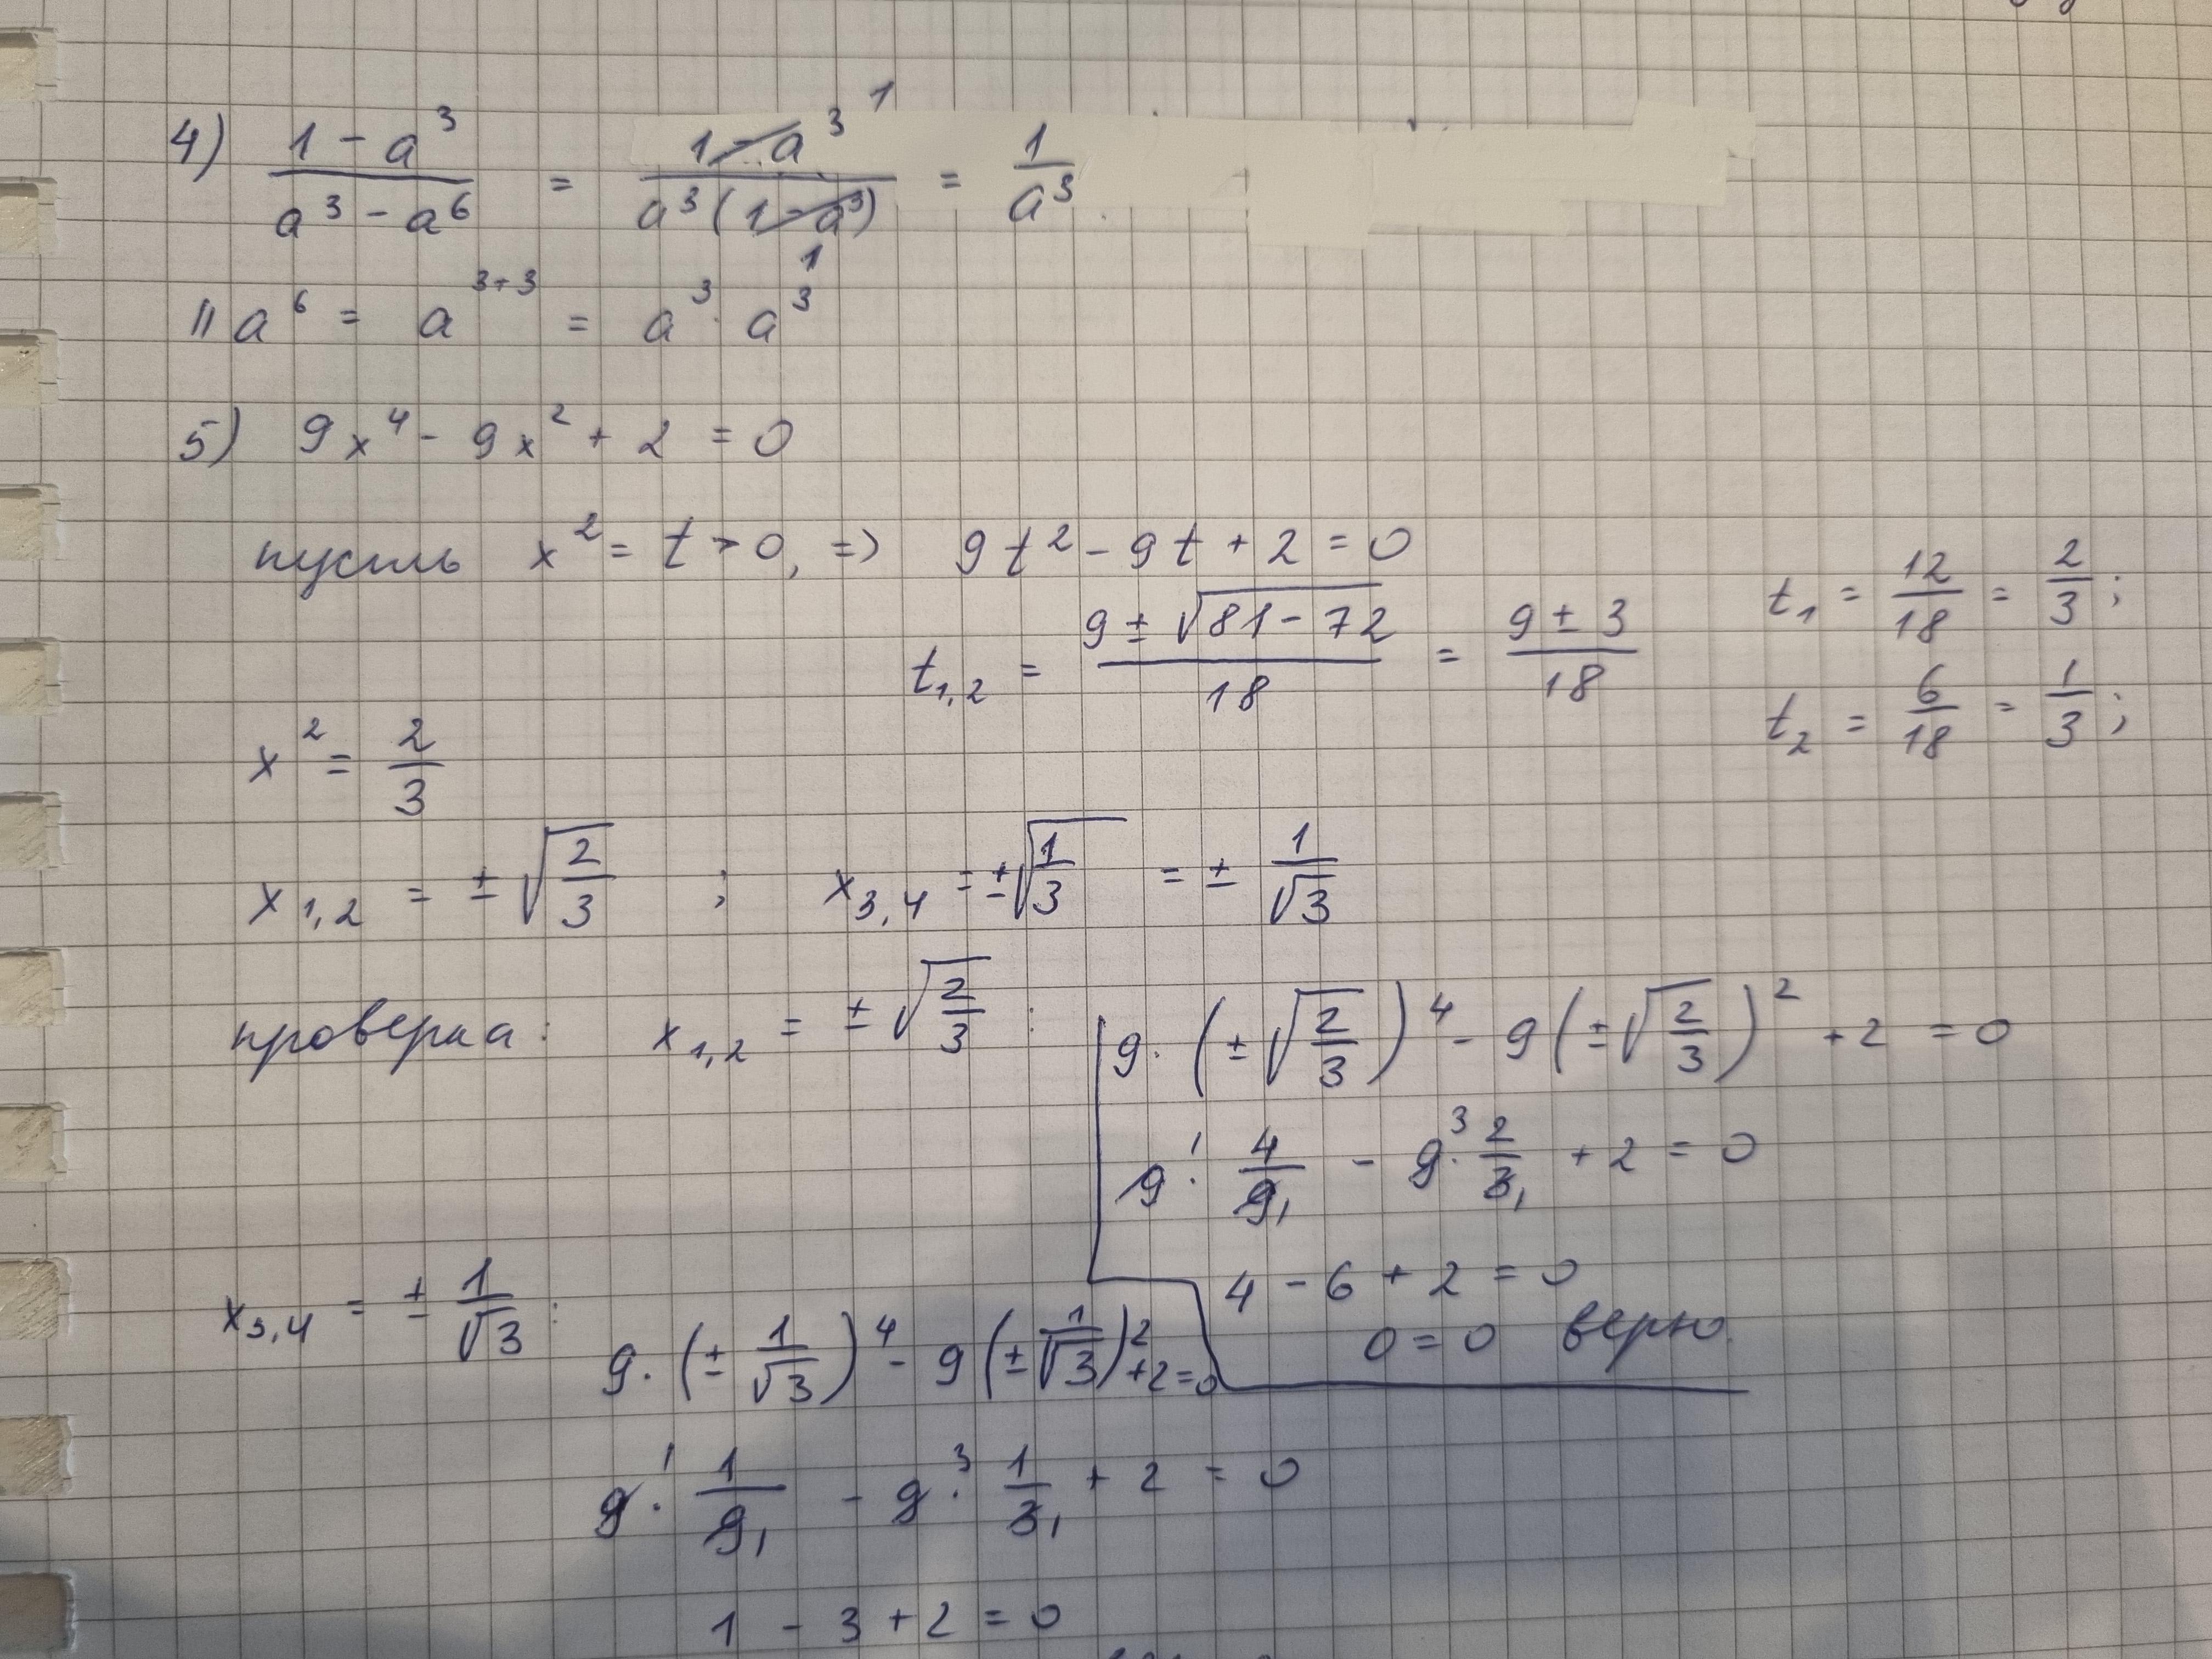 4) (1 - a³)/(a³ - a⁶) = (1 - a³)/(a³(1 - a³)) = 1/a³
|| a⁶ = a³⁺³ = a³ · a³
5) 9x⁴ - 9x² + 2 = 0
пусть x² = t > 0, => 9t² - 9t + 2 = 0
t₁,₂ = (9 ± √(81 - 72))/18 = (9 ± 3)/18
t₁ = 12/18 = 2/3 ;
t₂ = 6/18 = 1/3 ;
x² = 2/3
x₁,₂ = ± √(2/3) ; x₃,₄ = ± √(1/3) = ± 1/√3
проверка: x₁,₂ = ± √(2/3) : 9 · (± √(2/3))⁴ - 9(± √(2/3))² + 2 = 0
9 · 4/9 - 9 · 2/3 + 2 = 0
4 - 6 + 2 = 0
0 = 0 верно.
x₃,₄ = ± 1/√3 : 9 · (± 1/√3)⁴ - 9(± 1/√3)² + 2 = 0
9 · 1/9 - 9 · 1/3 + 2 = 0
1 - 3 + 2 = 0